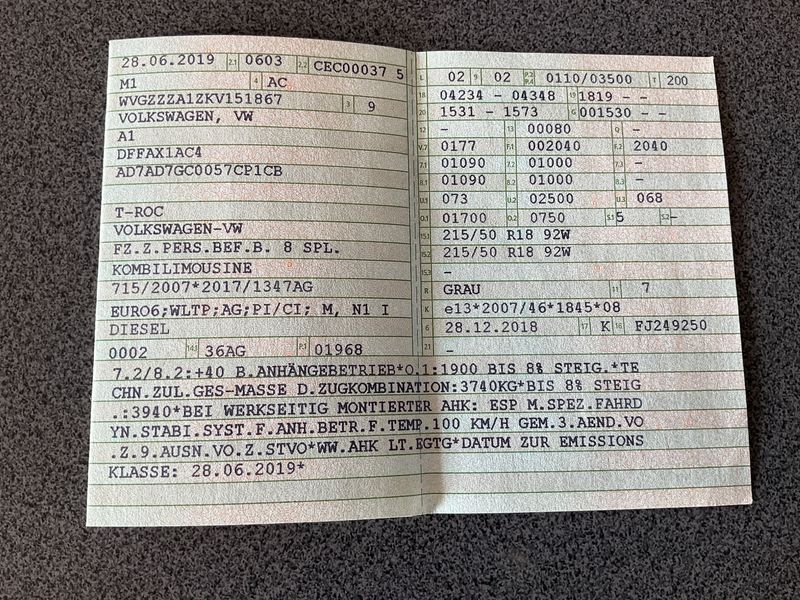 28.06.2019 2.1 0603 2.2 CEC00037 5
M1 4 AC
WVGZZZA1ZKV151867 3 9
VOLKSWAGEN, VW
A1
DFFAX1AC4
AD7AD7GC0057CP1CB
T-ROC
VOLKSWAGEN-VW
FZ.Z.PERS.BEF.B. 8 SPL.
KOMBILIMOUSINE
715/2007*2017/1347AG
EURO6;WLTP;AG;PI/CI; M, N1 I
DIESEL
0002 14.1 36AG P.1 01968
L 02 9 02 P.2 P.4 0110/03500 T 200
18 04234 - 04348 19 1819 - -
20 1531 - 1573 G 001530 - -
12 - 13 00080 Q -
V.7 0177 F.1 002040 F.2 2040
7.1 01090 7.2 01000 7.3 -
8.1 01090 8.2 01000 8.3 -
U.1 073 U.2 02500 U.3 068
O.1 01700 O.2 0750 S.1 5 S.2 -
15.1 215/50 R18 92W
15.2 215/50 R18 92W
15.3 -
R GRAU 11 7
K e13*2007/46*1845*08
6 28.12.2018 17 K 16 FJ249250
21 -
7.2/8.2:+40 B.ANHÄNGEBETRIEB*O.1:1900 BIS 8% STEIG.*TE
CHN.ZUL.GES-MASSE D.ZUGKOMBINATION:3740KG*BIS 8% STEIG
.:3940*BEI WERKSEITIG MONTIERTER AHK: ESP M.SPEZ.FAHRD
YN.STABI.SYST.F.ANH.BETR.F.TEMP.100 KM/H GEM.3.AEND.VO
.Z.9.AUSN.VO.Z.STVO*WW.AHK LT.EGTG*DATUM ZUR EMISSIONS
KLASSE: 28.06.2019*